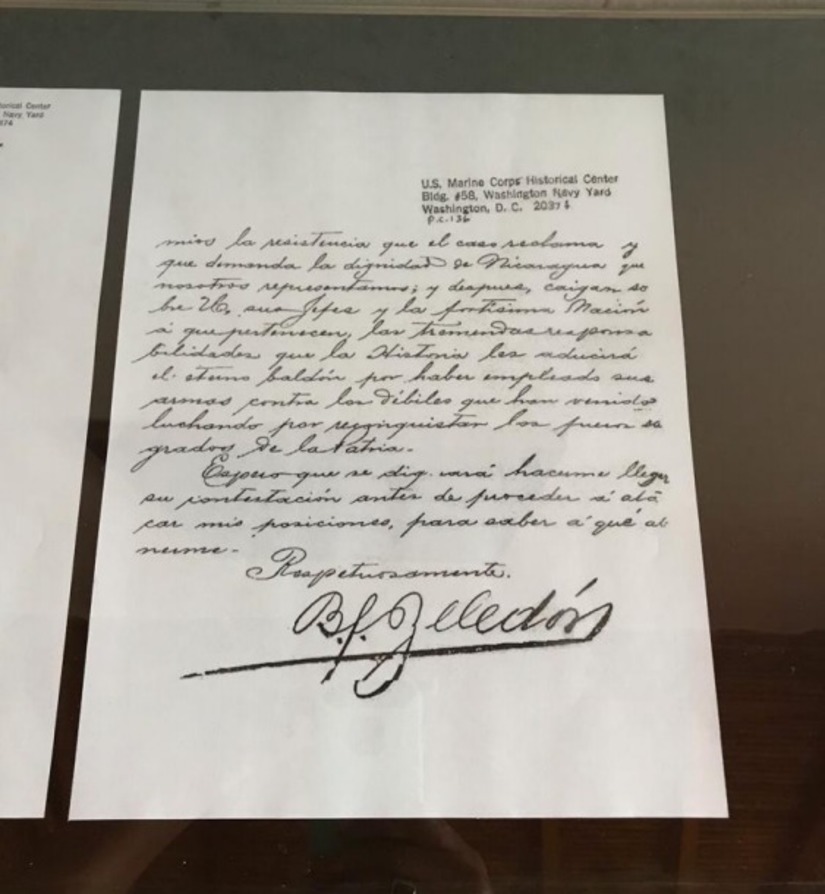 orical Center
Navy Yard
374
U.S. Marine Corps Historical Center
Bldg. #58, Washington Navy Yard
Washington, D. C. 20374
P.C. 136
mios la resistencia que el caso reclama y
que demanda la dignidad de Nicaragua que
nosotros representamos; y despues, caigan so
bre Uds, sus Jefes y la fortísima Nación
á que pertenecen, las tremendas responsa
bilidades que la Historia les aducirá
el eterno baldón por haber empleado sus
armas contra los débiles que han venido
luchando por reconquistar los fueros sa
grados de la Patria.
Espero que se dignará hacerme llegar
su contestación antes de proceder á ata
car mis posiciones, para saber á qué at
nerme.
Respetuosamente.
B.f. Zeledón